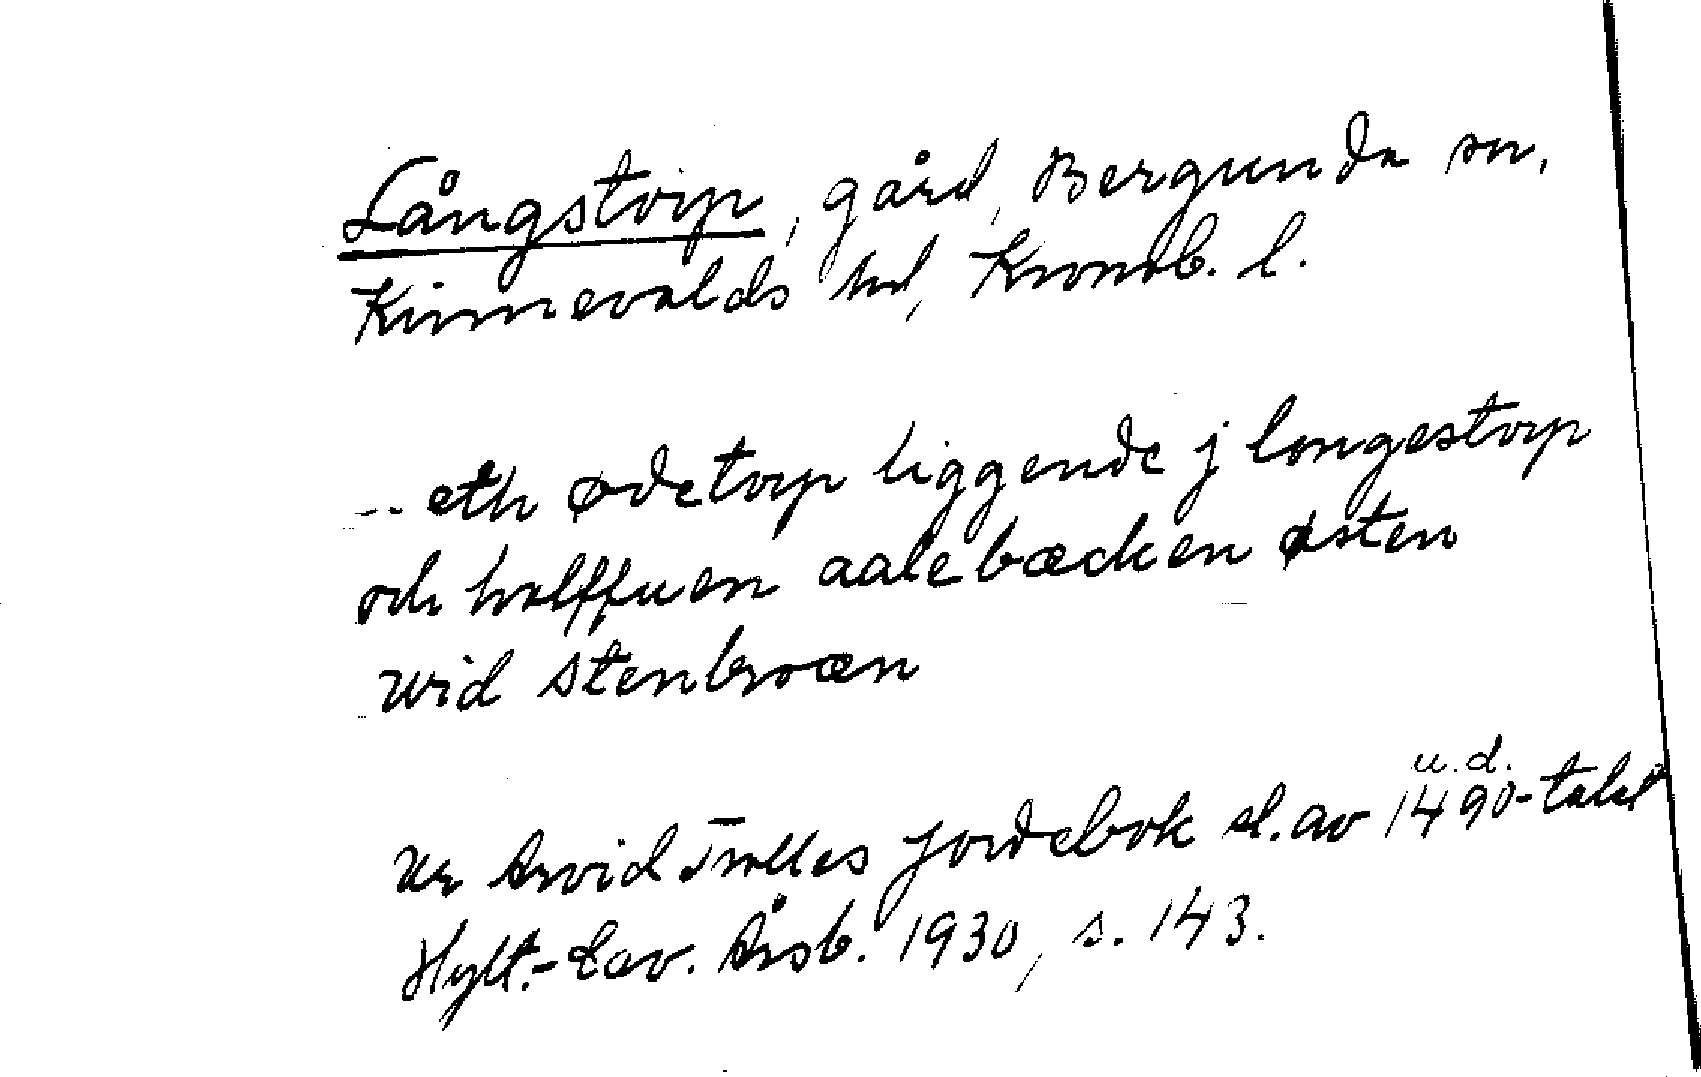 Långstorp, gård, Bergunda sn,
Kinnevalds hd, Kronob. l.
... eth ødetorp liggende j longestorp
och halffuen aalebæcken østen
wid stenbroæn
u.d.
Ur Arvid Trolles jordebok sl. av 1490-talet
Hylt.-Cav. Årsb. 1930, s. 143.